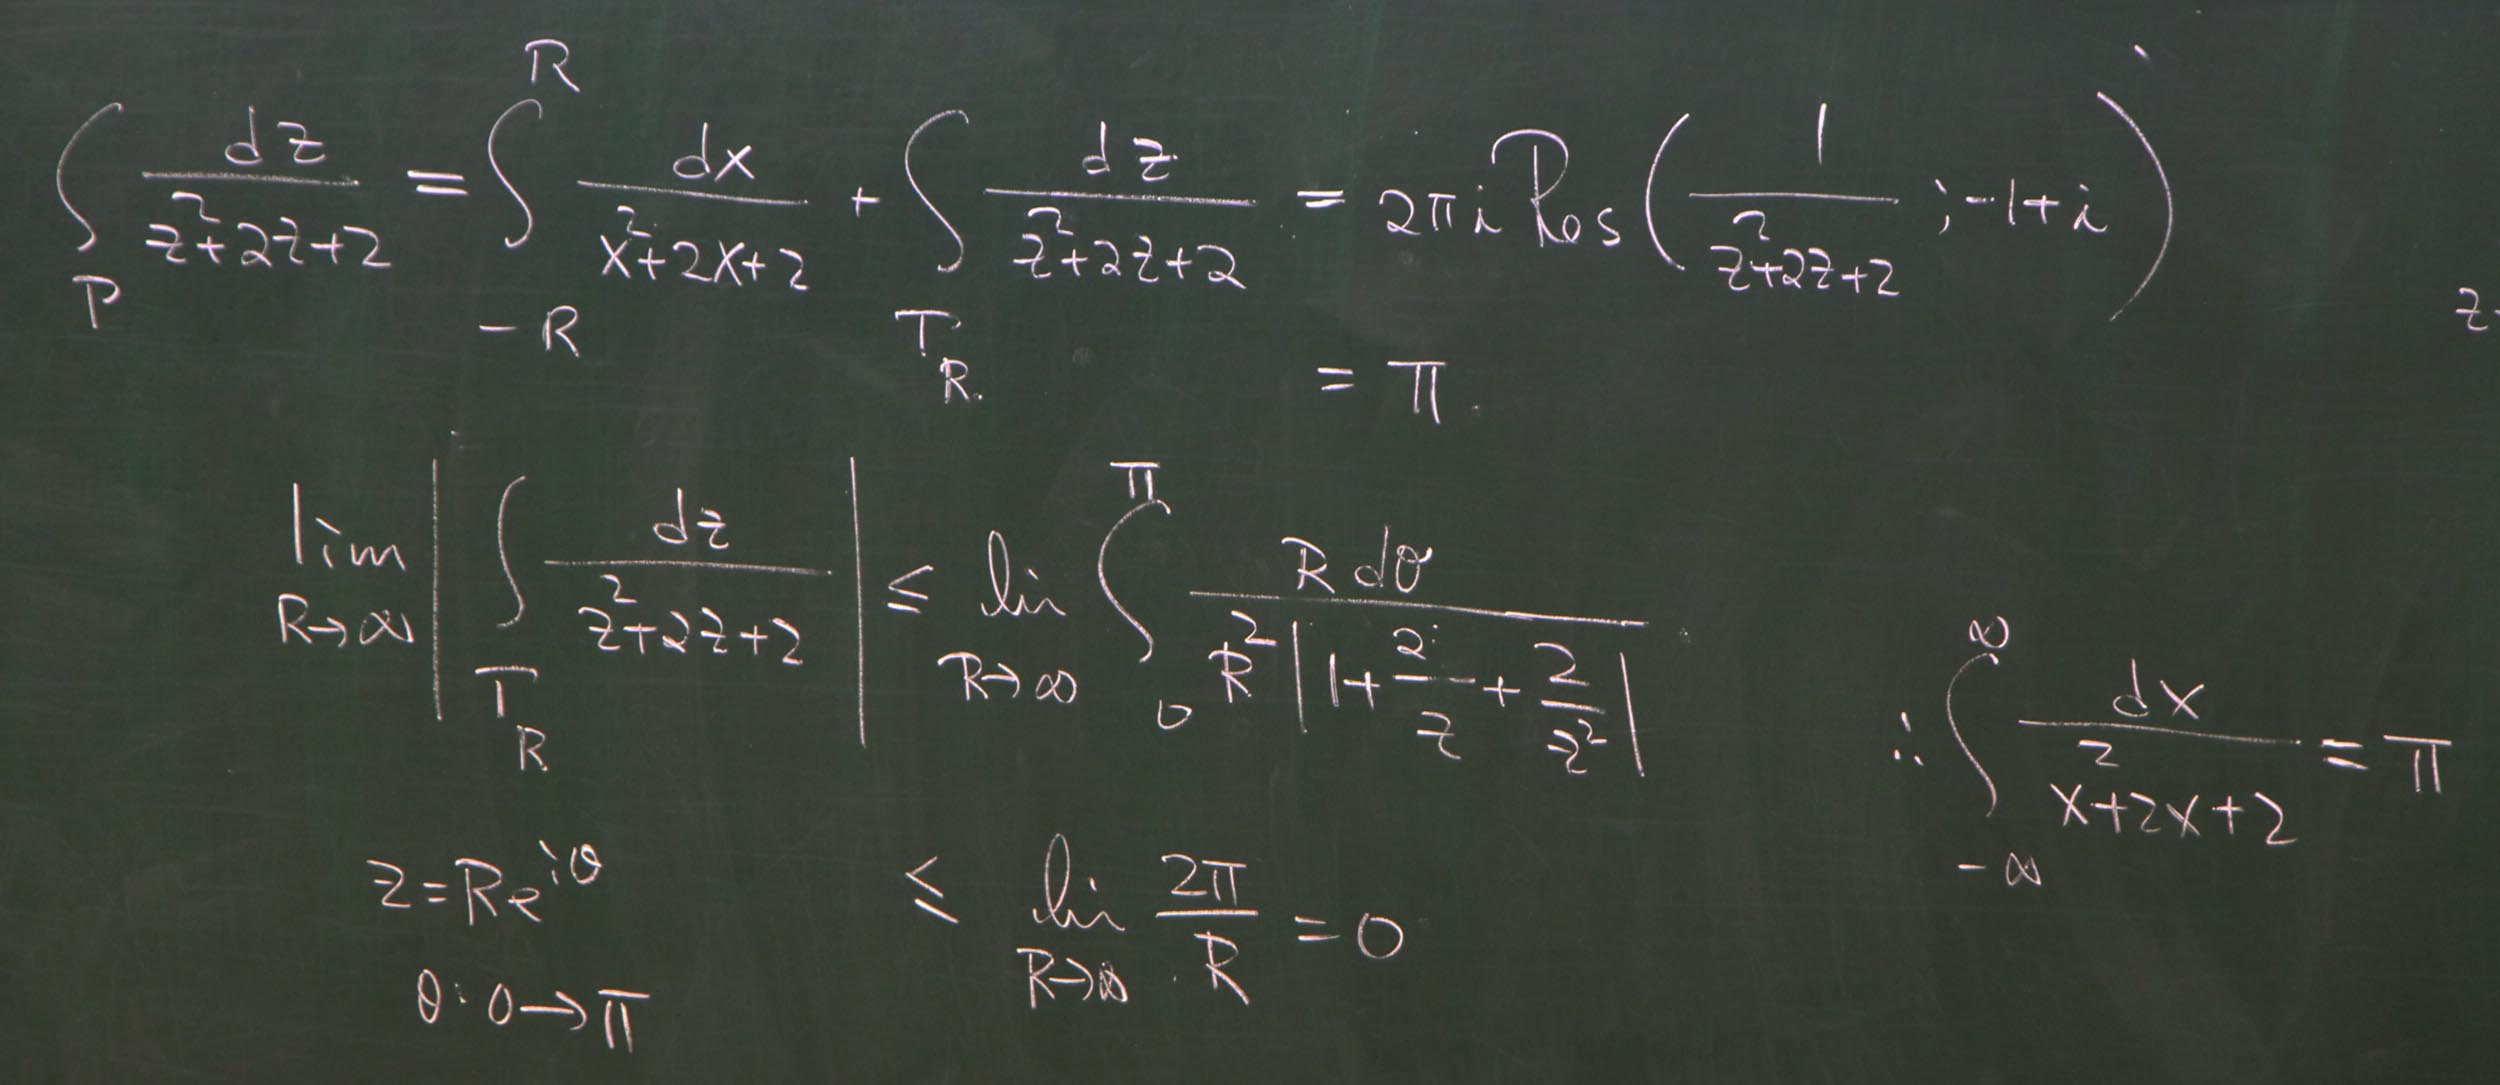 ∫_Γ dz/(z²+2z+2) = ∫_{-R}^{R} dx/(x²+2x+2) + ∫_{Γ_R} dz/(z²+2z+2) = 2πi Res(1/(z²+2z+2); -1+i)
= π.
lim_{R→∞} |∫_{Γ_R} dz/(z²+2z+2)| ≤ lim_{R→∞} ∫_0^π R dθ/(R²|1+2/z+2/z²|)
∴ ∫_{-∞}^{∞} dx/(x²+2x+2) = π
z=Re^{iθ} ≤ lim_{R→∞} 2π/R = 0
θ: 0→π